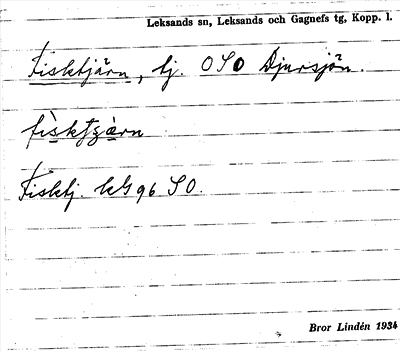 Leksands sn, Leksands och Gagnefs tg, Kopp. l.
Fisktjärn, tj. OSO Djursjön.
Fisktj. kG 96 SO.
Bror Lindén 1934